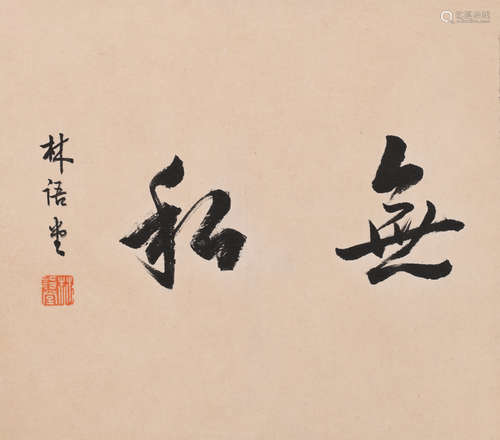 無私
林语堂